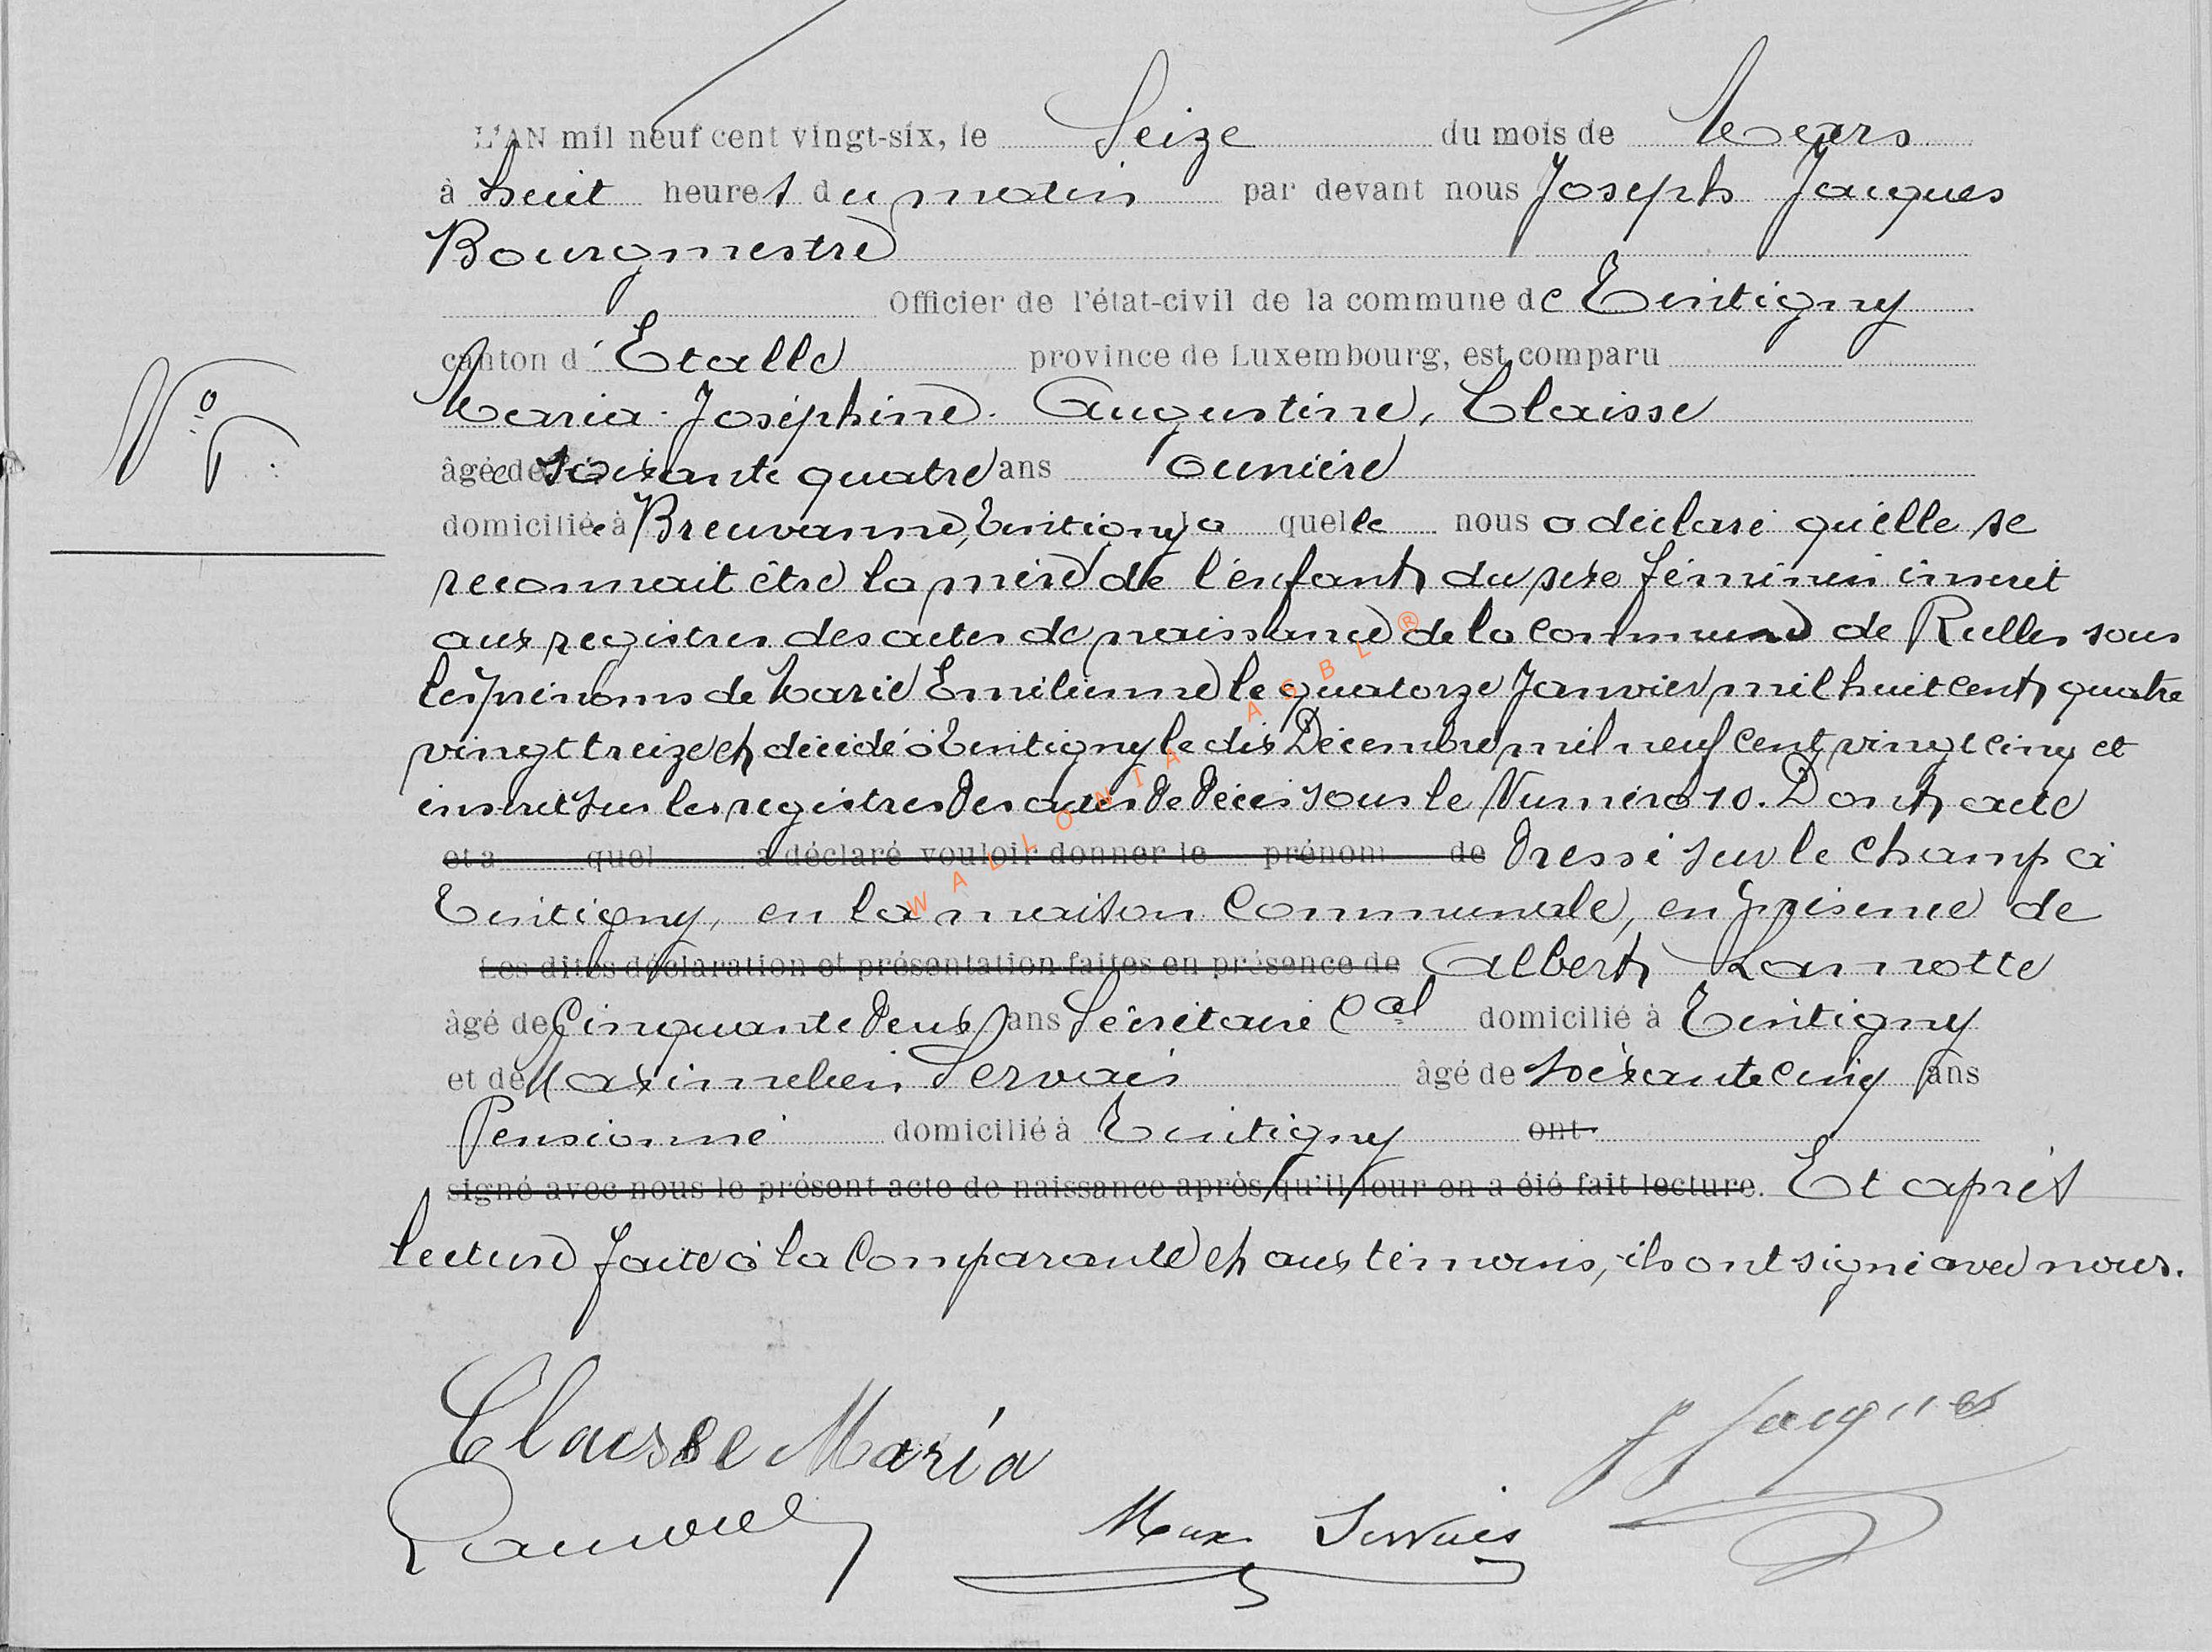 L'AN mil neuf cent vingt-six, le Seize du mois de Mars
à huit heures du matin par devant nous Joseph Jacques
Bourgmestre
Officier de l'état-civil de la commune de Tintigny
canton d'Etalle province de Luxembourg, est comparu
Maria. Joséphine. Augustine, Claisse
âgée de soixante quatre ans
domiciliée à Breuvanne, Tintigny laquelle nous a déclaré qu'elle se
reconnait être la mère de l'enfant du sexe féminin inscrit
aux registres des actes de naissance de la commune de Rulles sous
les prénoms de Marie Emilienne le quatorze Janvier mil huit cent quatre
vingt treize et décédé à Tintigny le dix Décembre mil neuf cent vingt cinq et
inscrit sur les registres des actes de décès sous le Numéro 10. Dont acte
et a quel a déclaré vouloir donner le prénom de dressé sur le champ à
Tintigny, en la maison Communale, en présence de
Les dites déclaration et présentation faites en présence de Albert Lamotte
âgé de Cinquante deux ans Secrétaire Cal domicilié à Tintigny
et de Maximelien Servais âgé de soixante cinq ans
Pensionné domicilié à Tintigny ont
signé avec nous le présent acte de naissance après qu'il leur en a été fait lecture. Et après
lecture faite à la Comparante et aux témoins, ils ont signé avec nous.
N°
WALLONIA ASBL ®
Claisse Maria
J Jacques
Max Servais